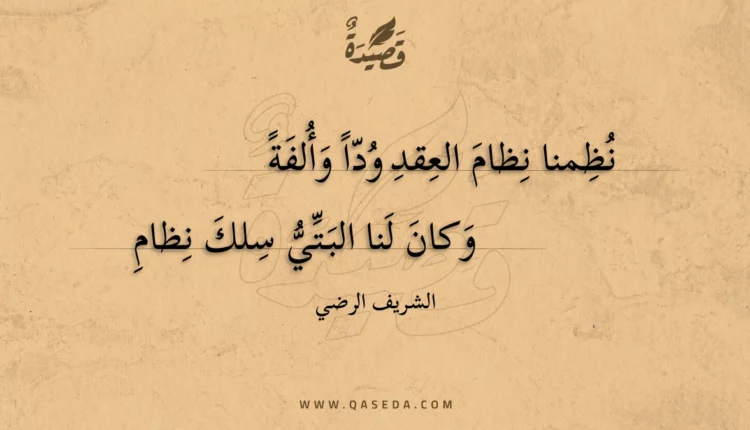 قَصِيْدَةٌ
نُظِمنا نِظامَ العِقدِ وُدّاً وَأُلفَةً
وَكانَ لَنا البَتِّيُّ سِلكَ نِظامِ
الشريف الرضي
WWW.QASEDA.COM